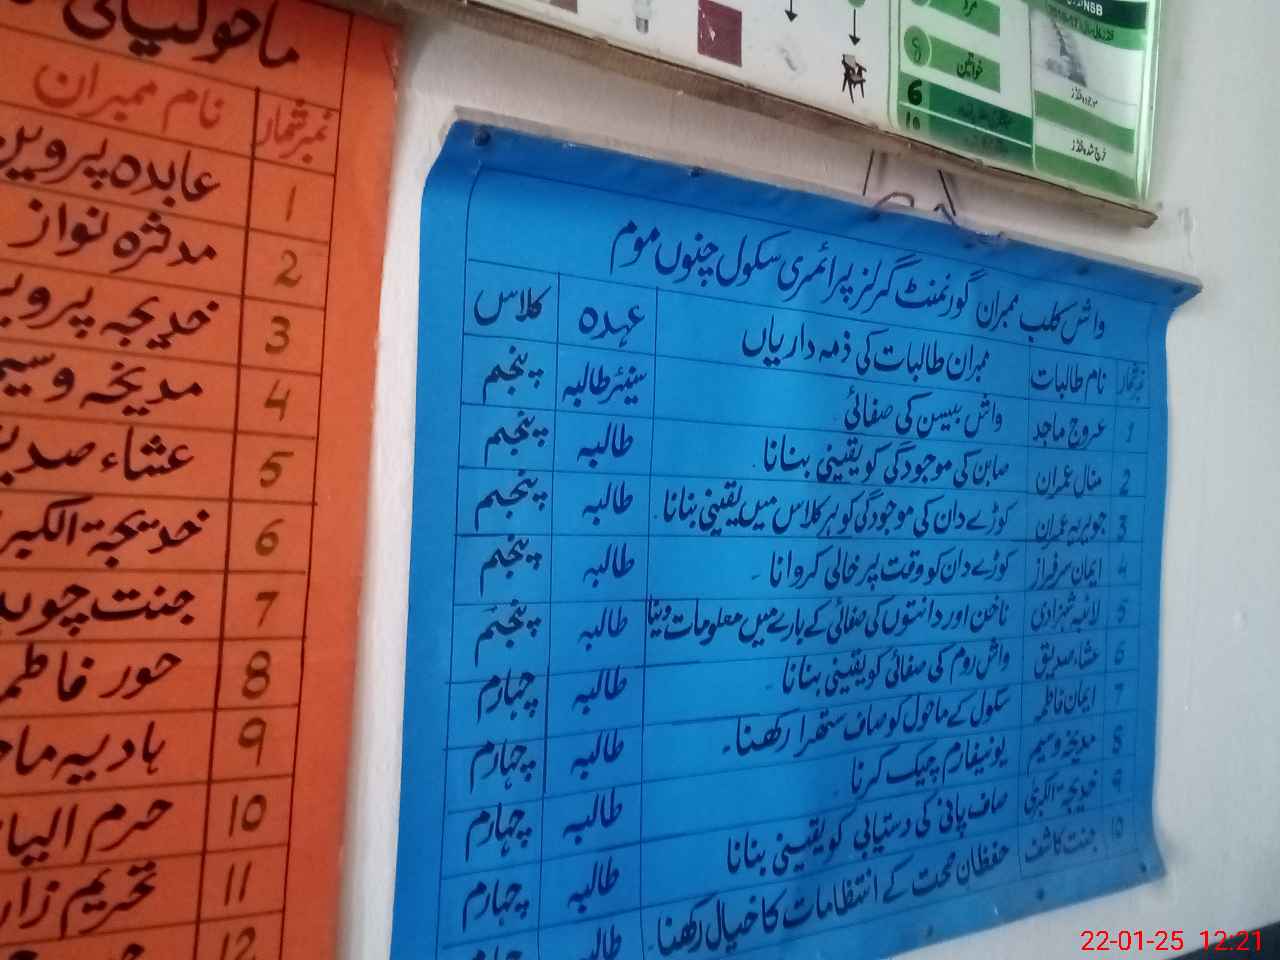 ماحولیاتی
نمبر شمار نام ممبران
1 عابدہ پروین
2 مدثرہ نواز
3 خدیجہ
4 مدیحہ وسیم
5 عشاء
6 خدیجۃ الکبر
7 جنت
8 حور فاطمہ
9 ہادیہ
10 حرم
11 تحریم
12
مرد
خواتین
6
10
NSB
موجودہ فنڈز
خرچ شدہ فنڈز
واش کلب ممبران گورنمنٹ گرلز پرائمری سکول چنوں موم
نمبر شمار نام طالبات ممبران طالبات کی ذمہ داریاں عہدہ کلاس
1 عروج ماجد واش بیسن کی صفائی۔ سینئر طالبہ پنجم
2 منال عمران صابن کی موجودگی کو یقینی بنانا۔ طالبہ پنجم
3 جویریہ عمران کوڑے دان کی موجودگی کو ہر کلاس میں یقینی بنانا۔ طالبہ پنجم
4 ایمان سرفراز کوڑے دان کو وقت پر خالی کروانا۔ طالبہ پنجم
5 لائبہ شہزادی ناخن اور دانتوں کی صفائی کے بارے میں معلومات دینا طالبہ پنجم
6 عشاء صدیق واش روم کی صفائی کو یقینی بنانا۔ طالبہ چہارم
7 ایمان فاطمہ سکول کے ماحول کو صاف ستھرا رکھنا۔ طالبہ چہارم
8 مدیحہ وسیم یونیفارم چیک کرنا۔ طالبہ چہارم
9 خدیجۃ الکبریٰ صاف پانی کی دستیابی کو یقینی بنانا طالبہ چہارم
10 جنت کاشف حفظان صحت کے انتظامات کا خیال رکھنا۔ طالبہ
22-01-25 12:21